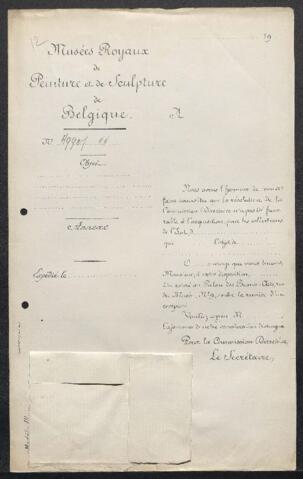 12
19
Musées Royaux
de
Peinture et de Sculpture
de
Belgique.
A
N°
Objet
Annexe
Expédié le
Nous avons l'honneur de vous
faire connaître que la résolution de la
Commission directrice n'a pas été favo-
rable à l'acquisition, pour les collections
de l'Etat, d
qui l'objet d
que vous
Monsieur, à votre disposition,
Palais des Beaux-Arts, rue
du Musée, N° 9, contre la remise d'un
récépissé
Veuillez agréer, M
l'assurance de notre considération distinguée
Pour la Commission Directrice,
Le Secrétaire,